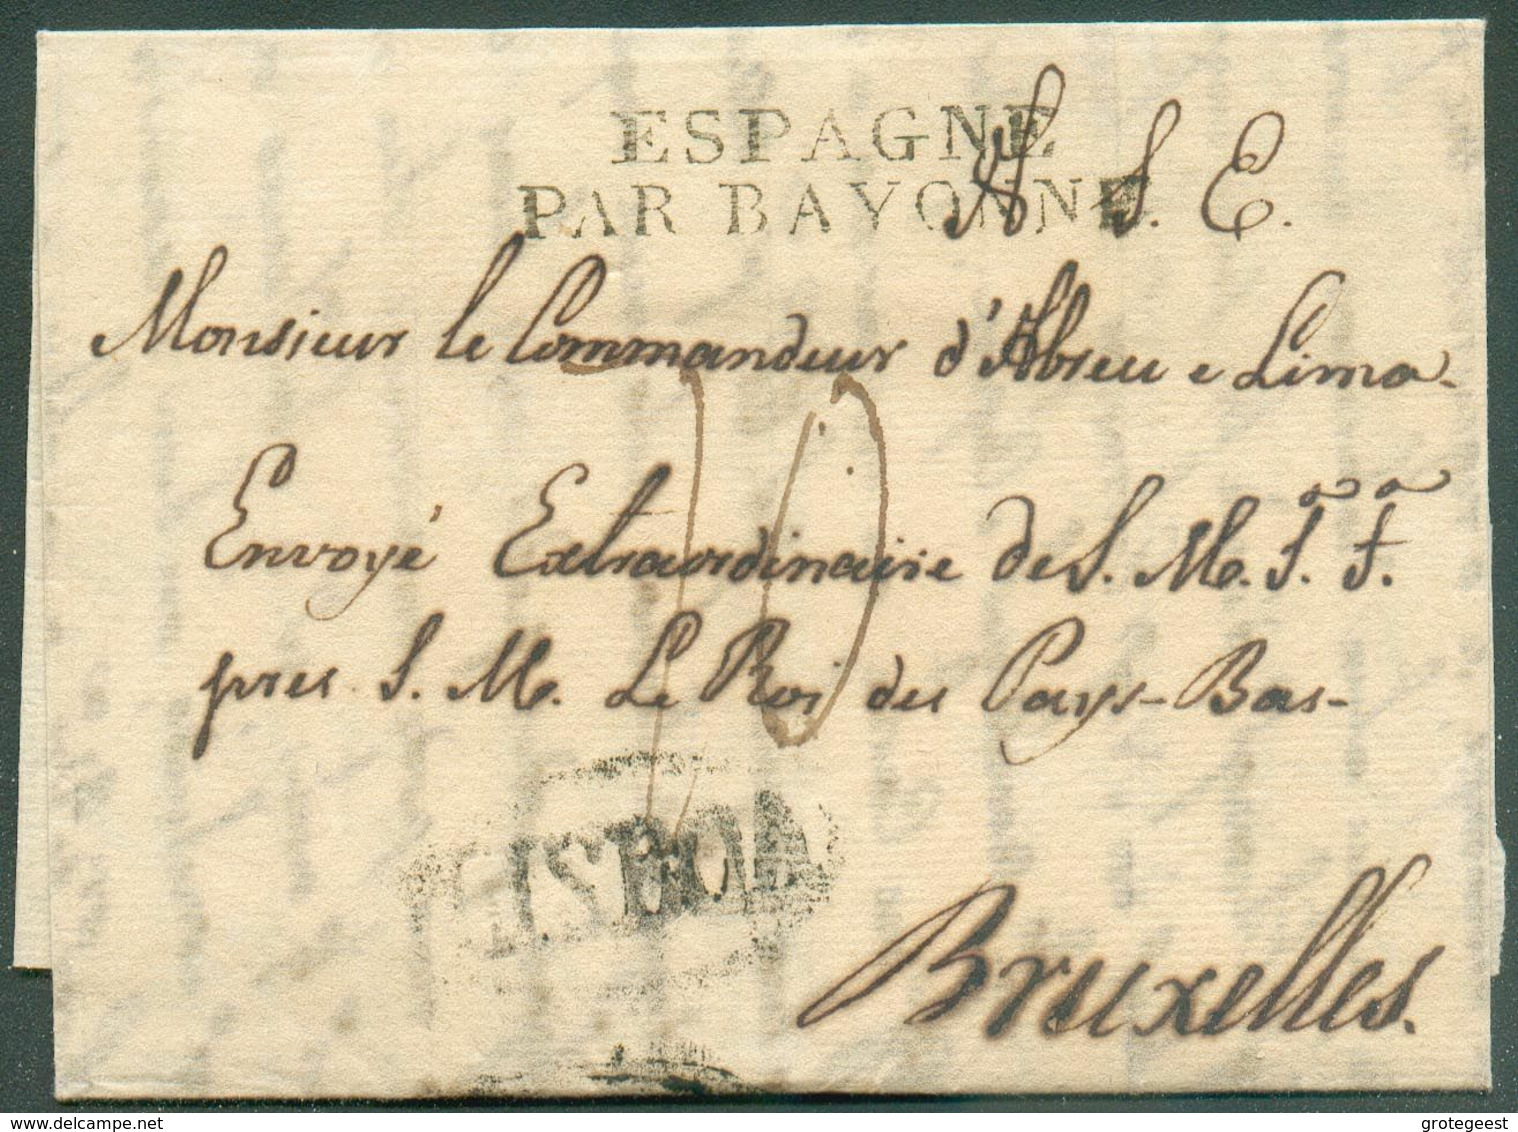 ESPAGNE
PAR BAYONNE
A S. E.
Monsieur le Commandeur d'Abreu e Lima
Envoyé Extraordinaire de S. M. T. F.
pres S. M. Le Roi des Pays-Bas-
LISBOA
Bruxelles.
© delcampe.net
grotegeest